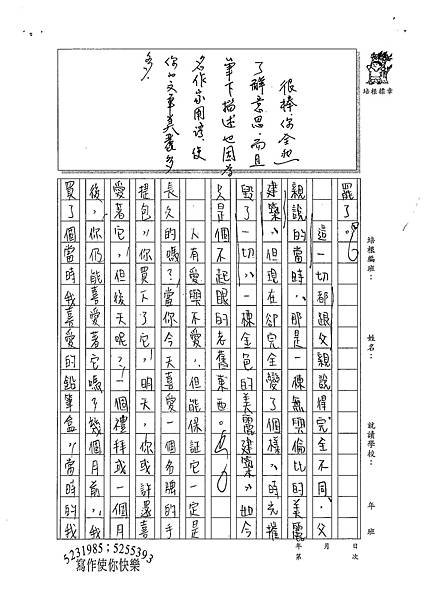 培根標章
很棒你全然
了解意思，而且
筆下描述也因為
名作家用語，使
你的文章美麗多
多。
培根編班：
姓名：
就讀學校：
年 班
罷了。
這一切都跟父親說得完全不同，父
親說的當時，那是一棟無與倫比的美麗
建築，但現在卻完全變了個樣，時光摧
毀了一切，一棟金色的美麗建築，如今
只是個不起眼的老舊東西。
人有愛與不愛，但能保証它一定是
長久的嗎？當你今天喜愛一個名牌的手
提包，你買下了它，明天，你或許還喜
愛著它，但後天呢？一個禮拜或一個月
後，你仍能喜愛著它嗎？幾個月前，我
買了個當時我喜愛的鉛筆盒，當時的我
年 月 日
第 次
5231985；5255393
寫作使你快樂